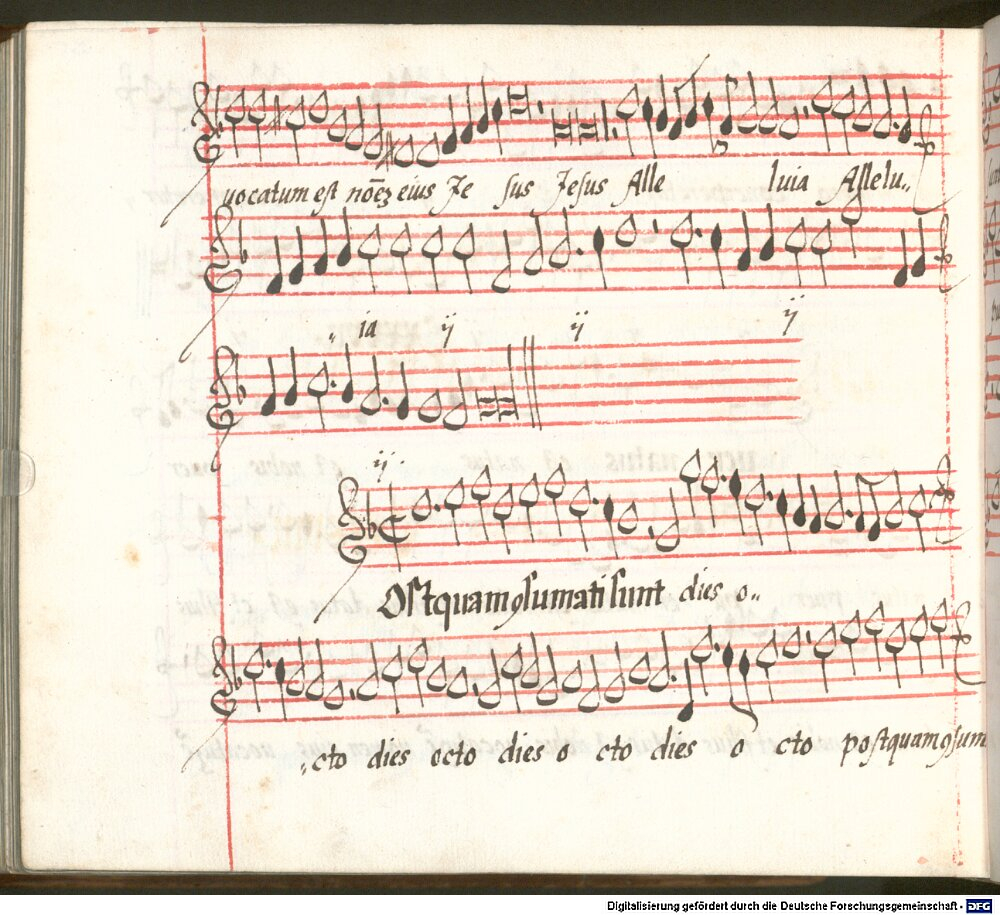 vocatum est nōēȝ eius Je sus Jesus Alle luia Allelu..
.. ia ij ij ij
ij.
Ostquam ꝯsumati sunt dies o..
.. cto dies octo dies o cto dies o cto postquam ꝯsum
Digitalisierung gefördert durch die Deutsche Forschungsgemeinschaft - DFG